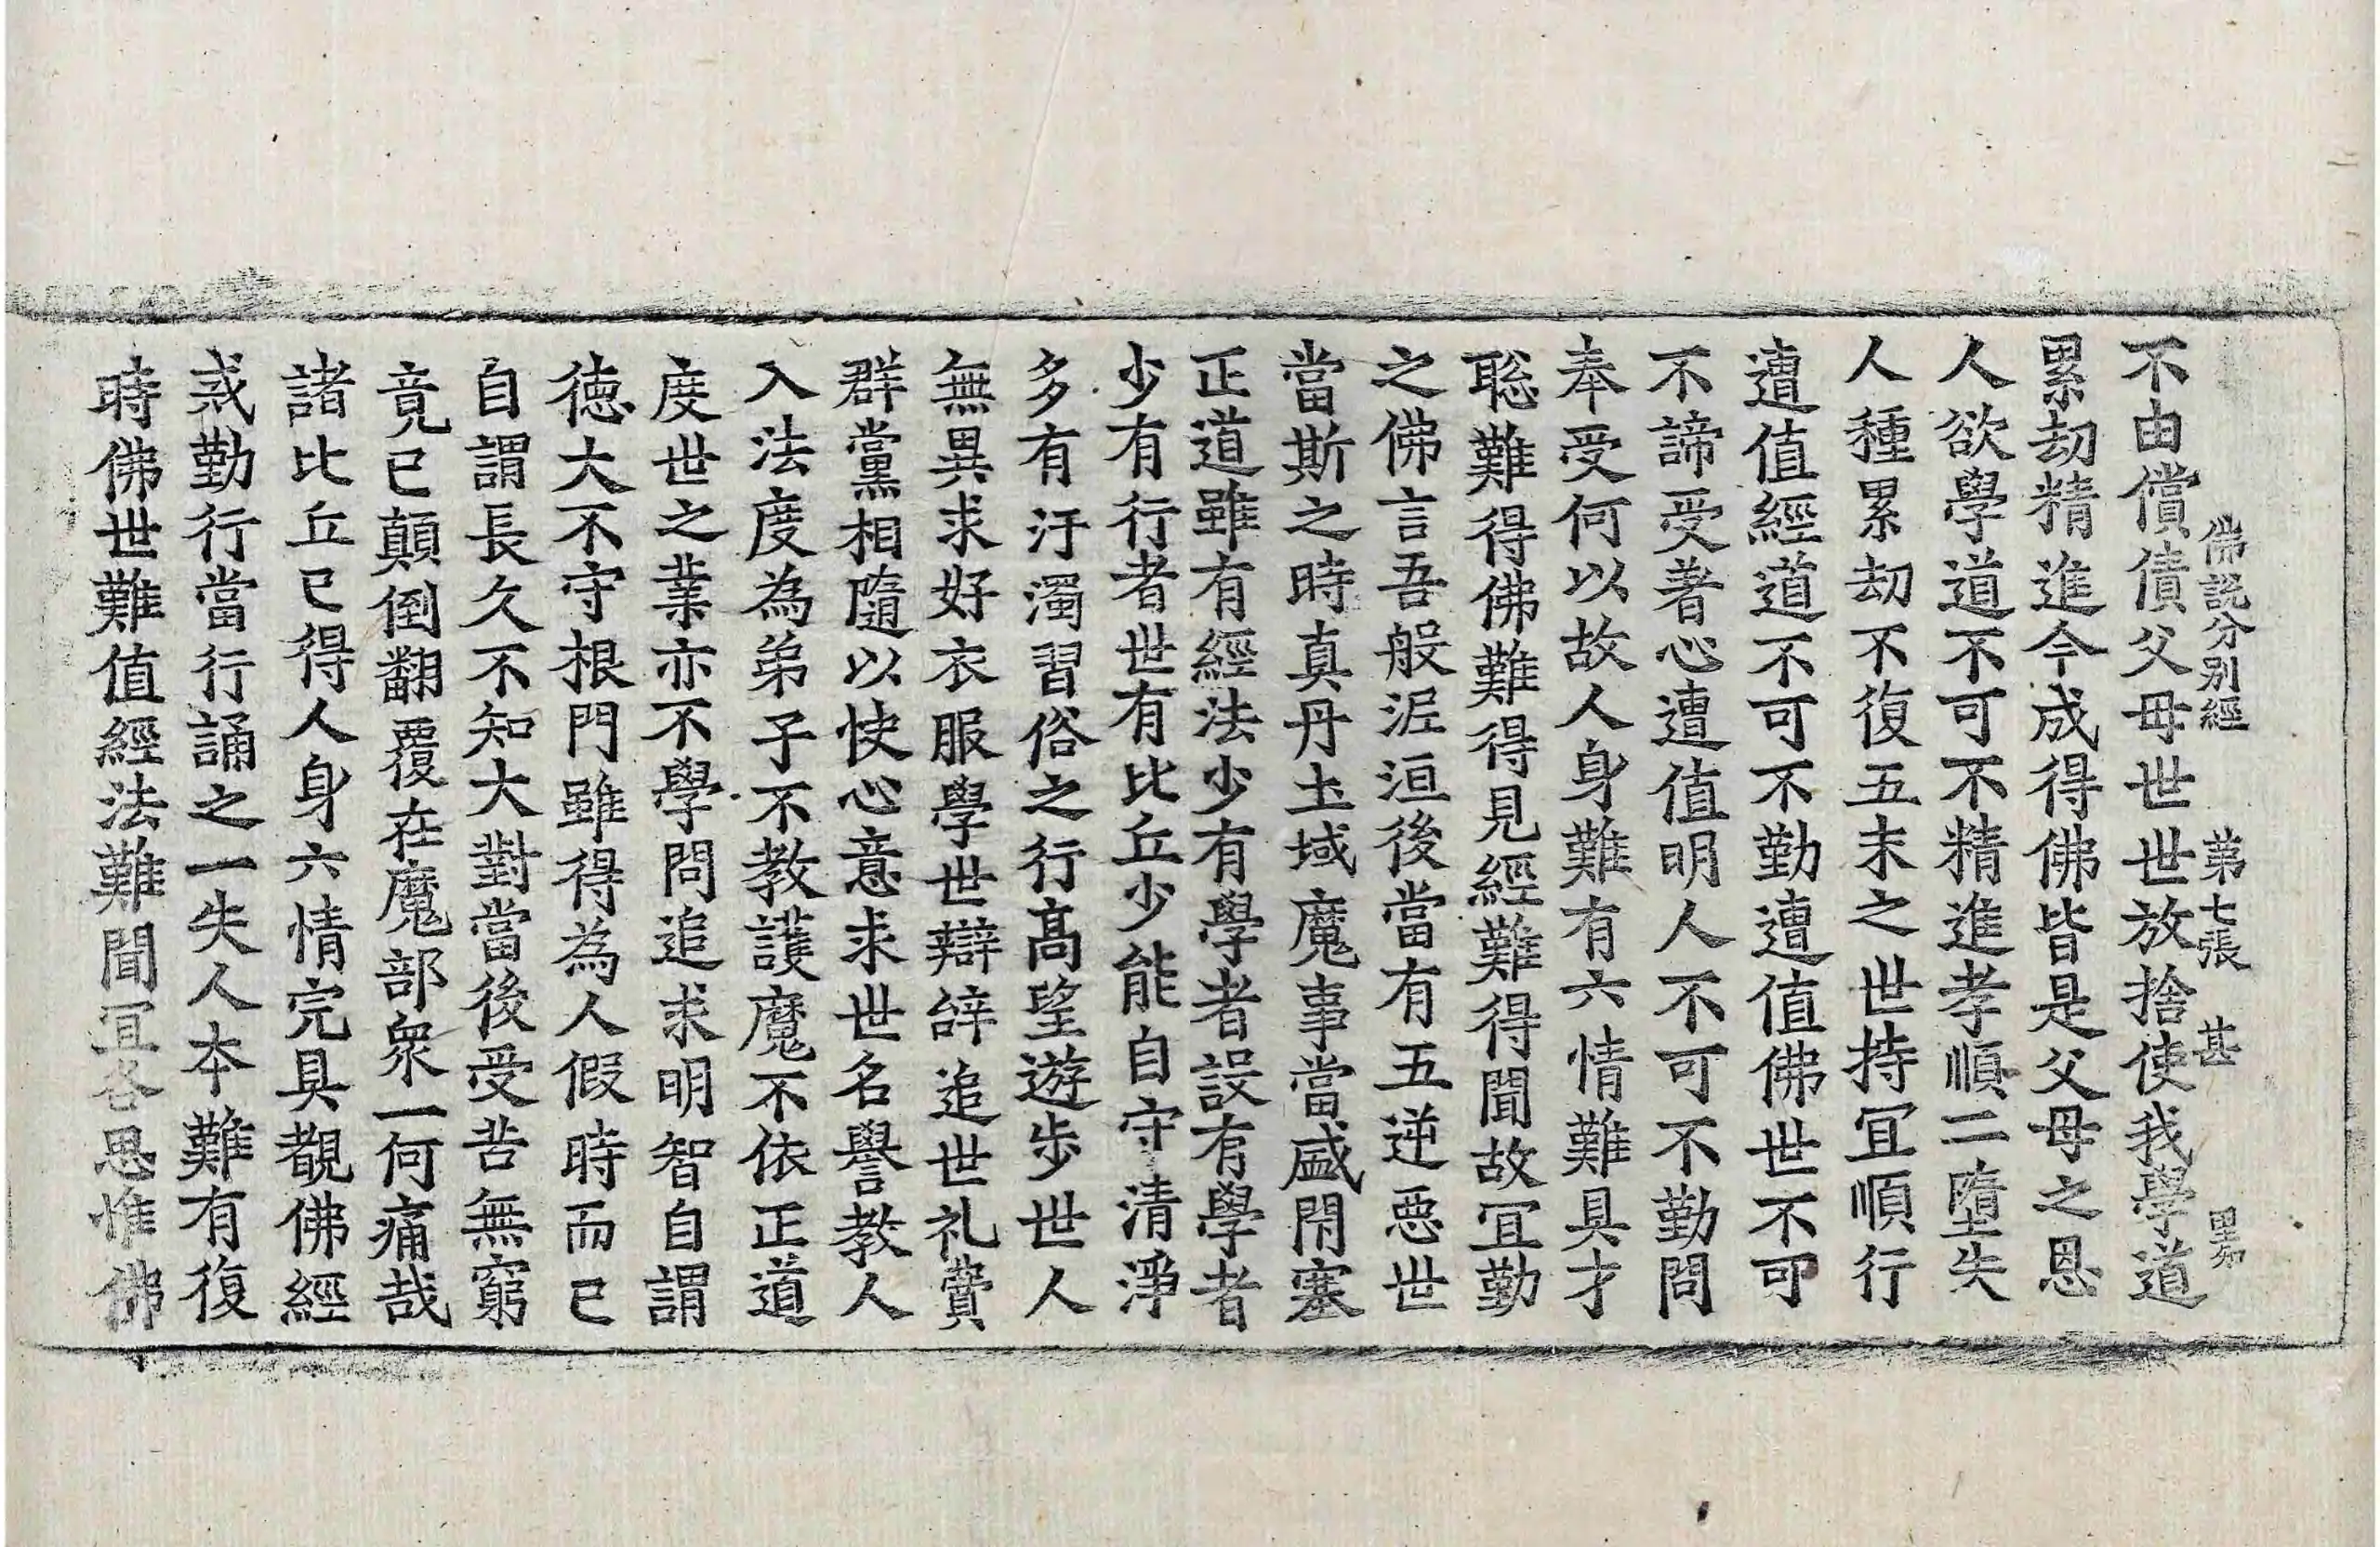 佛說分別經 第七張 甚
不由償債父母世世放捨使我學道
累劫精進今成得佛皆是父母之恩
人欲學道不可不精進孝順二墮失
人種累劫不復五末之世持宜順行
遭值經道不可不勤遭值佛世不可
不諦受著心遭值明人不可不勤問
奉受何以故人身難有六情難具才
聡難得佛難得見經難得聞故宜勤
之佛言吾般泥洹後當有五逆惡世
當斯之時真丹土域魔事當盛閇塞
正道雖有經法少有學者設有學者
少有行者世有比丘少能自守清淨
多有汙濁習俗之行髙望遊步世人
無異求好衣服學世辯辝追世礼賓
群黨相隨以快心意求世名譽教人
入法度為弟子不教護魔不依正道
度世之業亦不學問追求明智自謂
德大不守根門雖得為人假時而已
自謂長久不知大對當後受苦無窮
竟已顛倒翻覆在魔部衆一何痛哉
諸比丘已得人身六情完具覩佛經
戒勤行當行誦之一失人本難有復
時佛世難值經法難聞宜各思惟佛